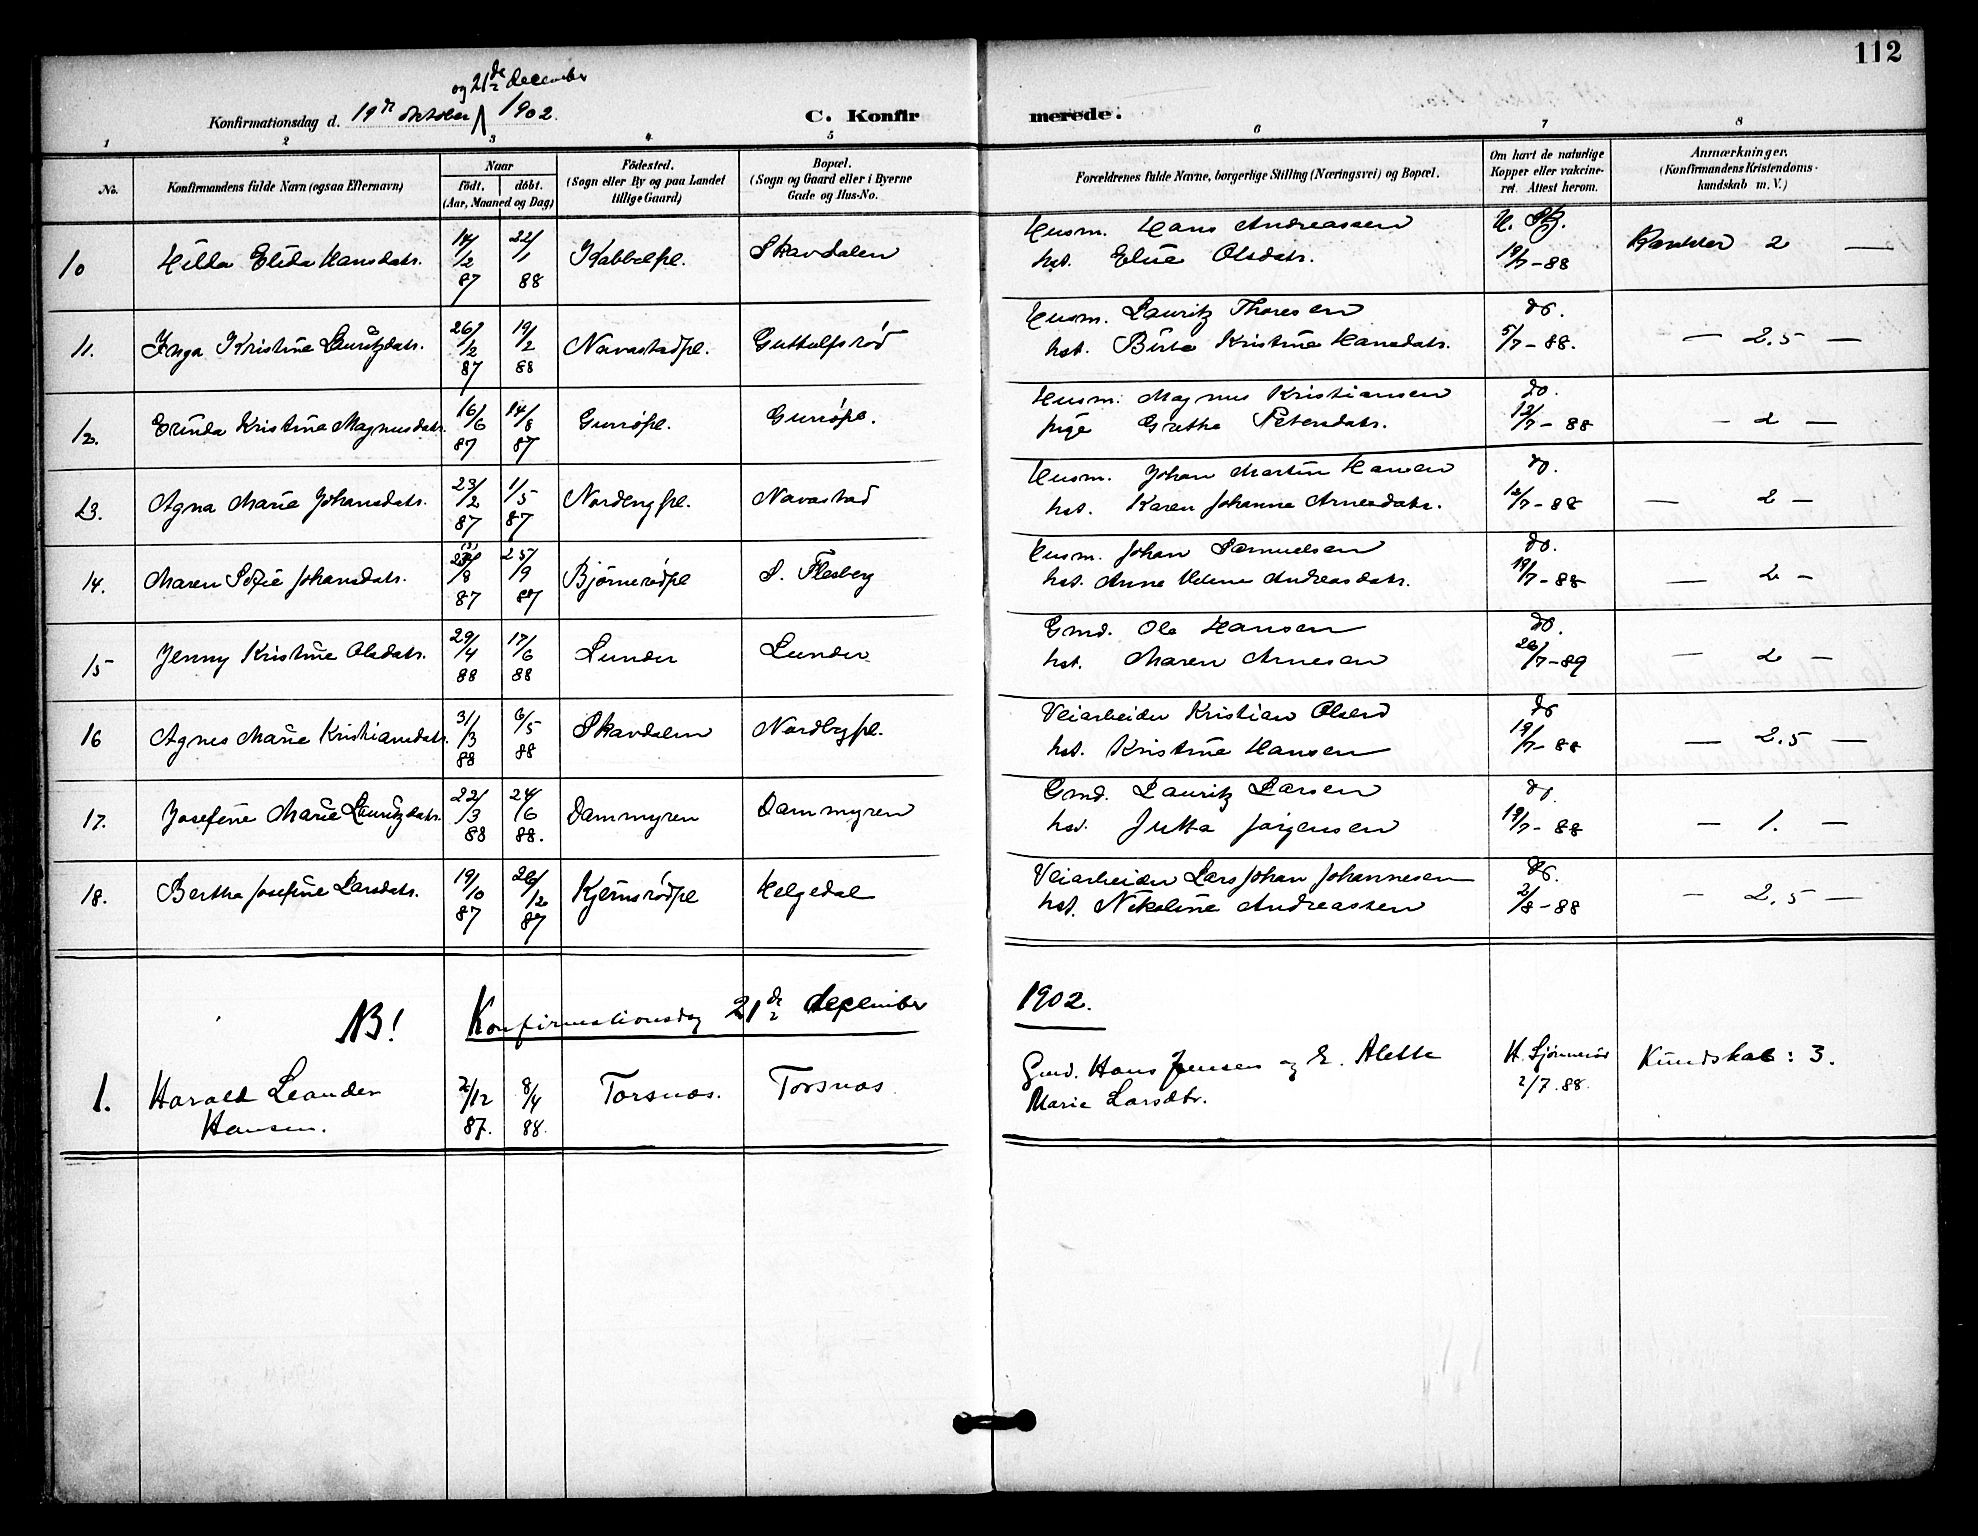 112
og 21de december
Konfirmationsdag d. 19de oktober 1902.
C. Konfirmerede.
1 2 3 4 5 6 7 8
No. Konfirmandens fulde Navn (ogsaa Efternavn) Naar født, døbt. (Aar, Maaned og Dag) Fødested. (Sogn eller By og paa Landet tillige Gaard) Bopæl. (Sogn og Gaard eller i Byerne Gade og Hus-No. Forældrenes fulde Navne, borgerlige Stilling (Næringsvei) og Bopæl. Om havt de naturlige Kopper eller vakcineret. Attest herom. Anmærkninger. (Konfirmandens Kristendomskundskab m. V.)
10 Hilda Elida Hansdatr. 14/2 87 22/1 88 Kabbelpl. Skavdalen Husm. Hans Andreassen
hst. Eline Olsdatr. 19/7-88 Karakter 2 —
11. Inga Kristine Lauritzdatr. 26/12 87 19/2 88 Navastadpl. Guttulfsrød Husm. Lauritz Thoresen do.
hst. Birte Kristine Hansdatr. 5/7-88. — 2,5 —
12. Erinda Kristine Magnusdatr. 16/6 87 14/8 87 Gunröpl. Gunröpl. Husm. Magnus Kristiansen do.
pige Grethe Petersdatr. 12/7-88 — 2 —
13. Agna Marie Johansdatr. 23/2 87 1/5 87 Nordengpl. Navastad Husm. Johan Martin Hansen do.
hst. Karen Johanne Arnesdatr. 12/7-88 — 2 —
14. Maren Sofie Johansdatr. /8 87 25/9 87 Bjørnerødpl S. Flesberg Husm. Johan Samuelsen do.
hst. Anne Helene Andreasdatr. 19/7-88 — 2 —
15 Jenny Kristine Olsdatr. 29/4 88 17/6 88 Lunder Lunder Gmd. Ole Hansen do.
hst. Maren Arnesen 26/7-89 — 2 —
16 Agnes Marie Kristiansdatr. 31/3 88 6/5 88 Skavdalen Nordbypl. Veiarbeider Kristian Olsen do
hst. Kristine Hansen 19/7-88 — 2.5 —
17. Josefine Marie Lauritzdatr. 22/3 88 24/6 88. Dammyren Dammyren Gmd. Lauritz Larsen do.
hst. Jutta Jørgensen 19/7-88 — 1. —
18. Bertha Josefine Larsdatr. 19/10 87 26/12 87 Kjernsrødpl Helgedal Veiarbeider Lars Johan Johannesen do.
hst. Nikoline Andreassen 2/8-88 — 2,5 —
NB! Konfirmationsdag 21de december 1902.
1. Harald Leander 2/12 8/4 Torsnæs. Torsnæs Gmd. Hans Jensen og E. Alette H. Sjönnerød Kundskab: 3.
Hansen. 87. 88. Marie Larsdtr. 2/7.88.